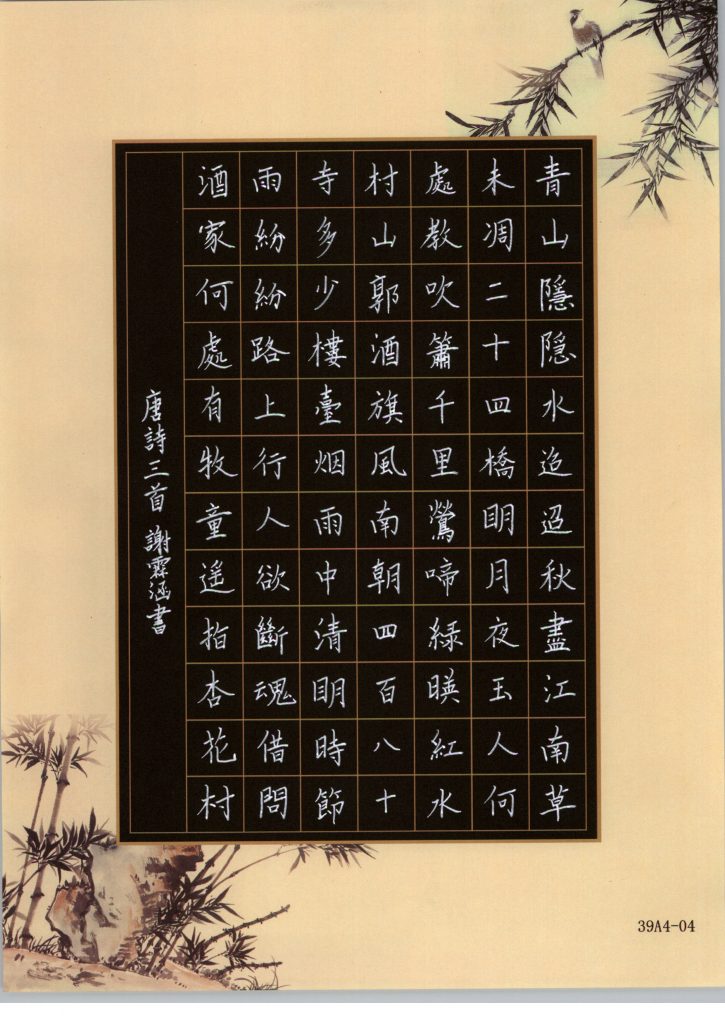 青山隱隱水迢迢秋盡江南草
未凋二十四橋明月夜玉人何
處教吹簫千里鶯啼綠映紅水
村山郭酒旗風南朝四百八十
寺多少樓臺烟雨中清明時節
雨紛紛路上行人欲斷魂借問
酒家何處有牧童遥指杏花村
唐詩三首 謝霖涵書
39A4-04